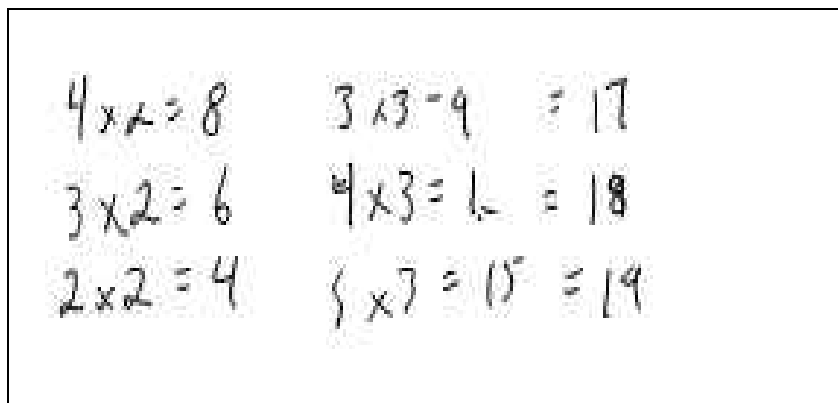 4x2=8 3x3=9 =17
3x2=6 4x3=12 =18
2x2=4 5x3=15 =19